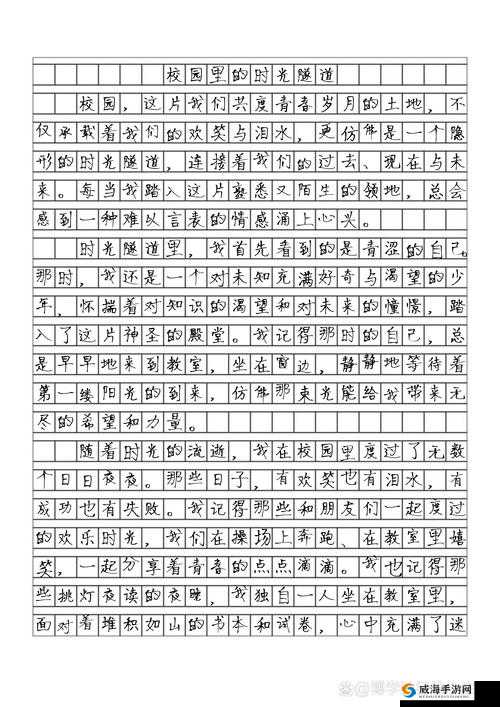 校园里的时光隧道
校园，这片我们共度青春岁月的土地，不
仅承载着我们的欢笑与泪水，更仿佛是一个隐
形的时光隧道，连接着我们的过去、现在与未
来。每当我踏入这片熟悉又陌生的领地，总会
感到一种难以言表的情感涌上心头。
时光隧道里，我首先看到的是青涩的自己。
那时，我还是一个对未知充满好奇与渴望的少
年，怀揣着对知识的渴望和对未来的憧憬，踏
入了这片神圣的殿堂。我记得那时的自己，总
是早早地来到教室，坐在窗边，静静地等待着
第一缕阳光的到来，仿佛那束光能给我带来无
尽的希望和力量。
随着时光的流逝，我在校园里度过了无数
个日日夜夜。那些日子，有欢笑也有泪水，有
成功也有失败。我记得那些和朋友们一起度过
的欢乐时光，我们在操场上奔跑、在教室里嬉
笑，一起分享着青春的点点滴滴。我也记得那
些挑灯夜读的夜晚，我独自一人坐在教室里，
面对着堆积如山的书本和试卷，心中充满了迷
威海手游网